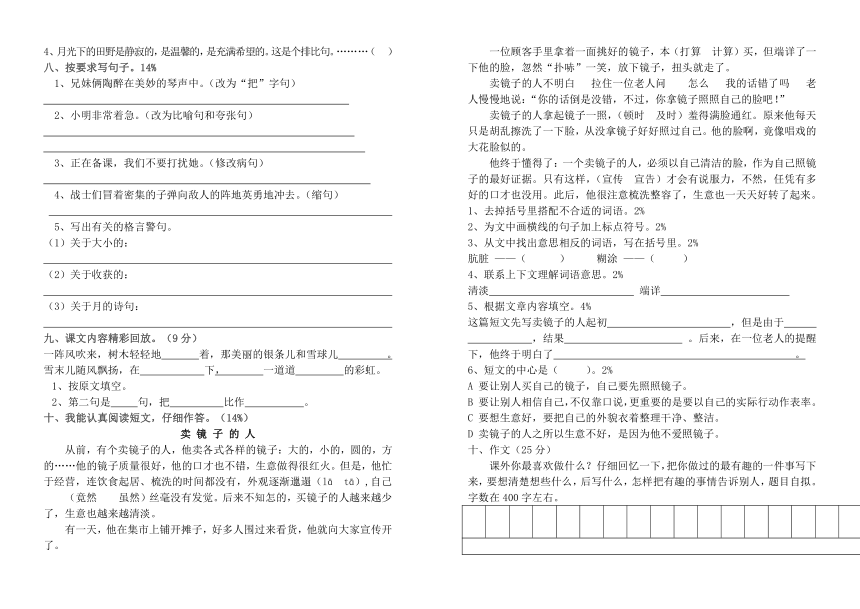 4、月光下的田野是静寂的,是温馨的,是充满希望的。这是个排比句。………(   )
八、按要求写句子。14%
1、兄妹俩陶醉在美妙的琴声中。(改为“把”字句)
2、小明非常着急。(改为比喻句和夸张句)
3、正在备课，我们不要打扰她。(修改病句)
4、战士们冒着密集的子弹向敌人的阵地英勇地冲去。(缩句)
5、写出有关的格言警句。
(1)关于大小的:
(2)关于收获的:
(3)关于月的诗句:
九、课文内容精彩回放。（9 分）
一阵风吹来，树木轻轻地_______着，那美丽的银条儿和雪球儿_________。
雪末儿随风飘扬，在____________下,________一道道_________的彩虹。
1、按原文填空。
2、第二句是_____句，把__________比作___________。
十、我能认真阅读短文，仔细作答。（14%）
卖 镜 子 的 人
从前，有个卖镜子的人，他卖各式各样的镜子：大的，小的，圆的，方
的……他的镜子质量很好，他的口才也不错，生意做得很红火。但是，他忙
于经营，连饮食起居、梳洗的时间都没有，外观逐渐邋遢(lā  tā),自己
(竟然   虽然)丝毫没有发觉。后来不知怎的，买镜子的人越来越少
了，生意也越来越清淡。
有一天，他在集市上铺开摊子，好多人围过来看货，他就向大家宣传开
了。
一位顾客手里拿着一面挑好的镜子，本（打算  计算）买，但端详了一
下他的脸，忽然“扑哧”一笑，放下镜子，扭头就走了。
卖镜子的人不明白   拉住一位老人问   怎么   我的话错了吗   老
人慢慢地说：“你的话倒是没错，不过，你拿镜子照照自己的脸吧！”
卖镜子的人拿起镜子一照，（顿时  及时）羞得满脸通红。原来他每天
只是胡乱擦洗了一下脸，从没拿镜子好好照过自己。他的脸啊，竟像唱戏的
大花脸似的。
他终于懂得了：一个卖镜子的人，必须以自己清洁的脸，作为自己照镜
子的最好证据。只有这样，（宣传  宣告）才会有说服力，不然，任凭有多
好的口才也没用。此后，他很注意梳洗整容了，生意也一天天好转了起来。
1、去掉括号里搭配不合适的词语。2%
2、为文中画横线的句子加上标点符号。2%
3、从文中找出意思相反的词语，写在括号里。2%
肮脏 ——（      ）     糊涂 ——（     ）
4、联系上下文理解词语意思。2%
清淡__________________________ 端详_______________________
5、根据文章内容填空。4%
这篇短文先写卖镜子的人起初______________________,但是由于______
____________,结果_____________________ 。后来，在一位老人的提醒
下，他终于明白了____________________________________________。
6、短文的中心是（     ）。2%
A 要让别人买自己的镜子，自己要先照照镜子。
B 要让别人相信自己,不仅靠口说,更重要的是要以自己的实际行动作表率。
C 要想生意好，要把自己的外貌衣着整理干净、整洁。
D 卖镜子的人之所以生意不好，是因为他不爱照镜子。
十、作文（25 分）
课外你最喜欢做什么？仔细回忆一下,把你做过的最有趣的一件事写下
来，要想清楚想些什么，后写什么，怎样把有趣的事情告诉别人，题目自拟。
字数在 400 字左右。